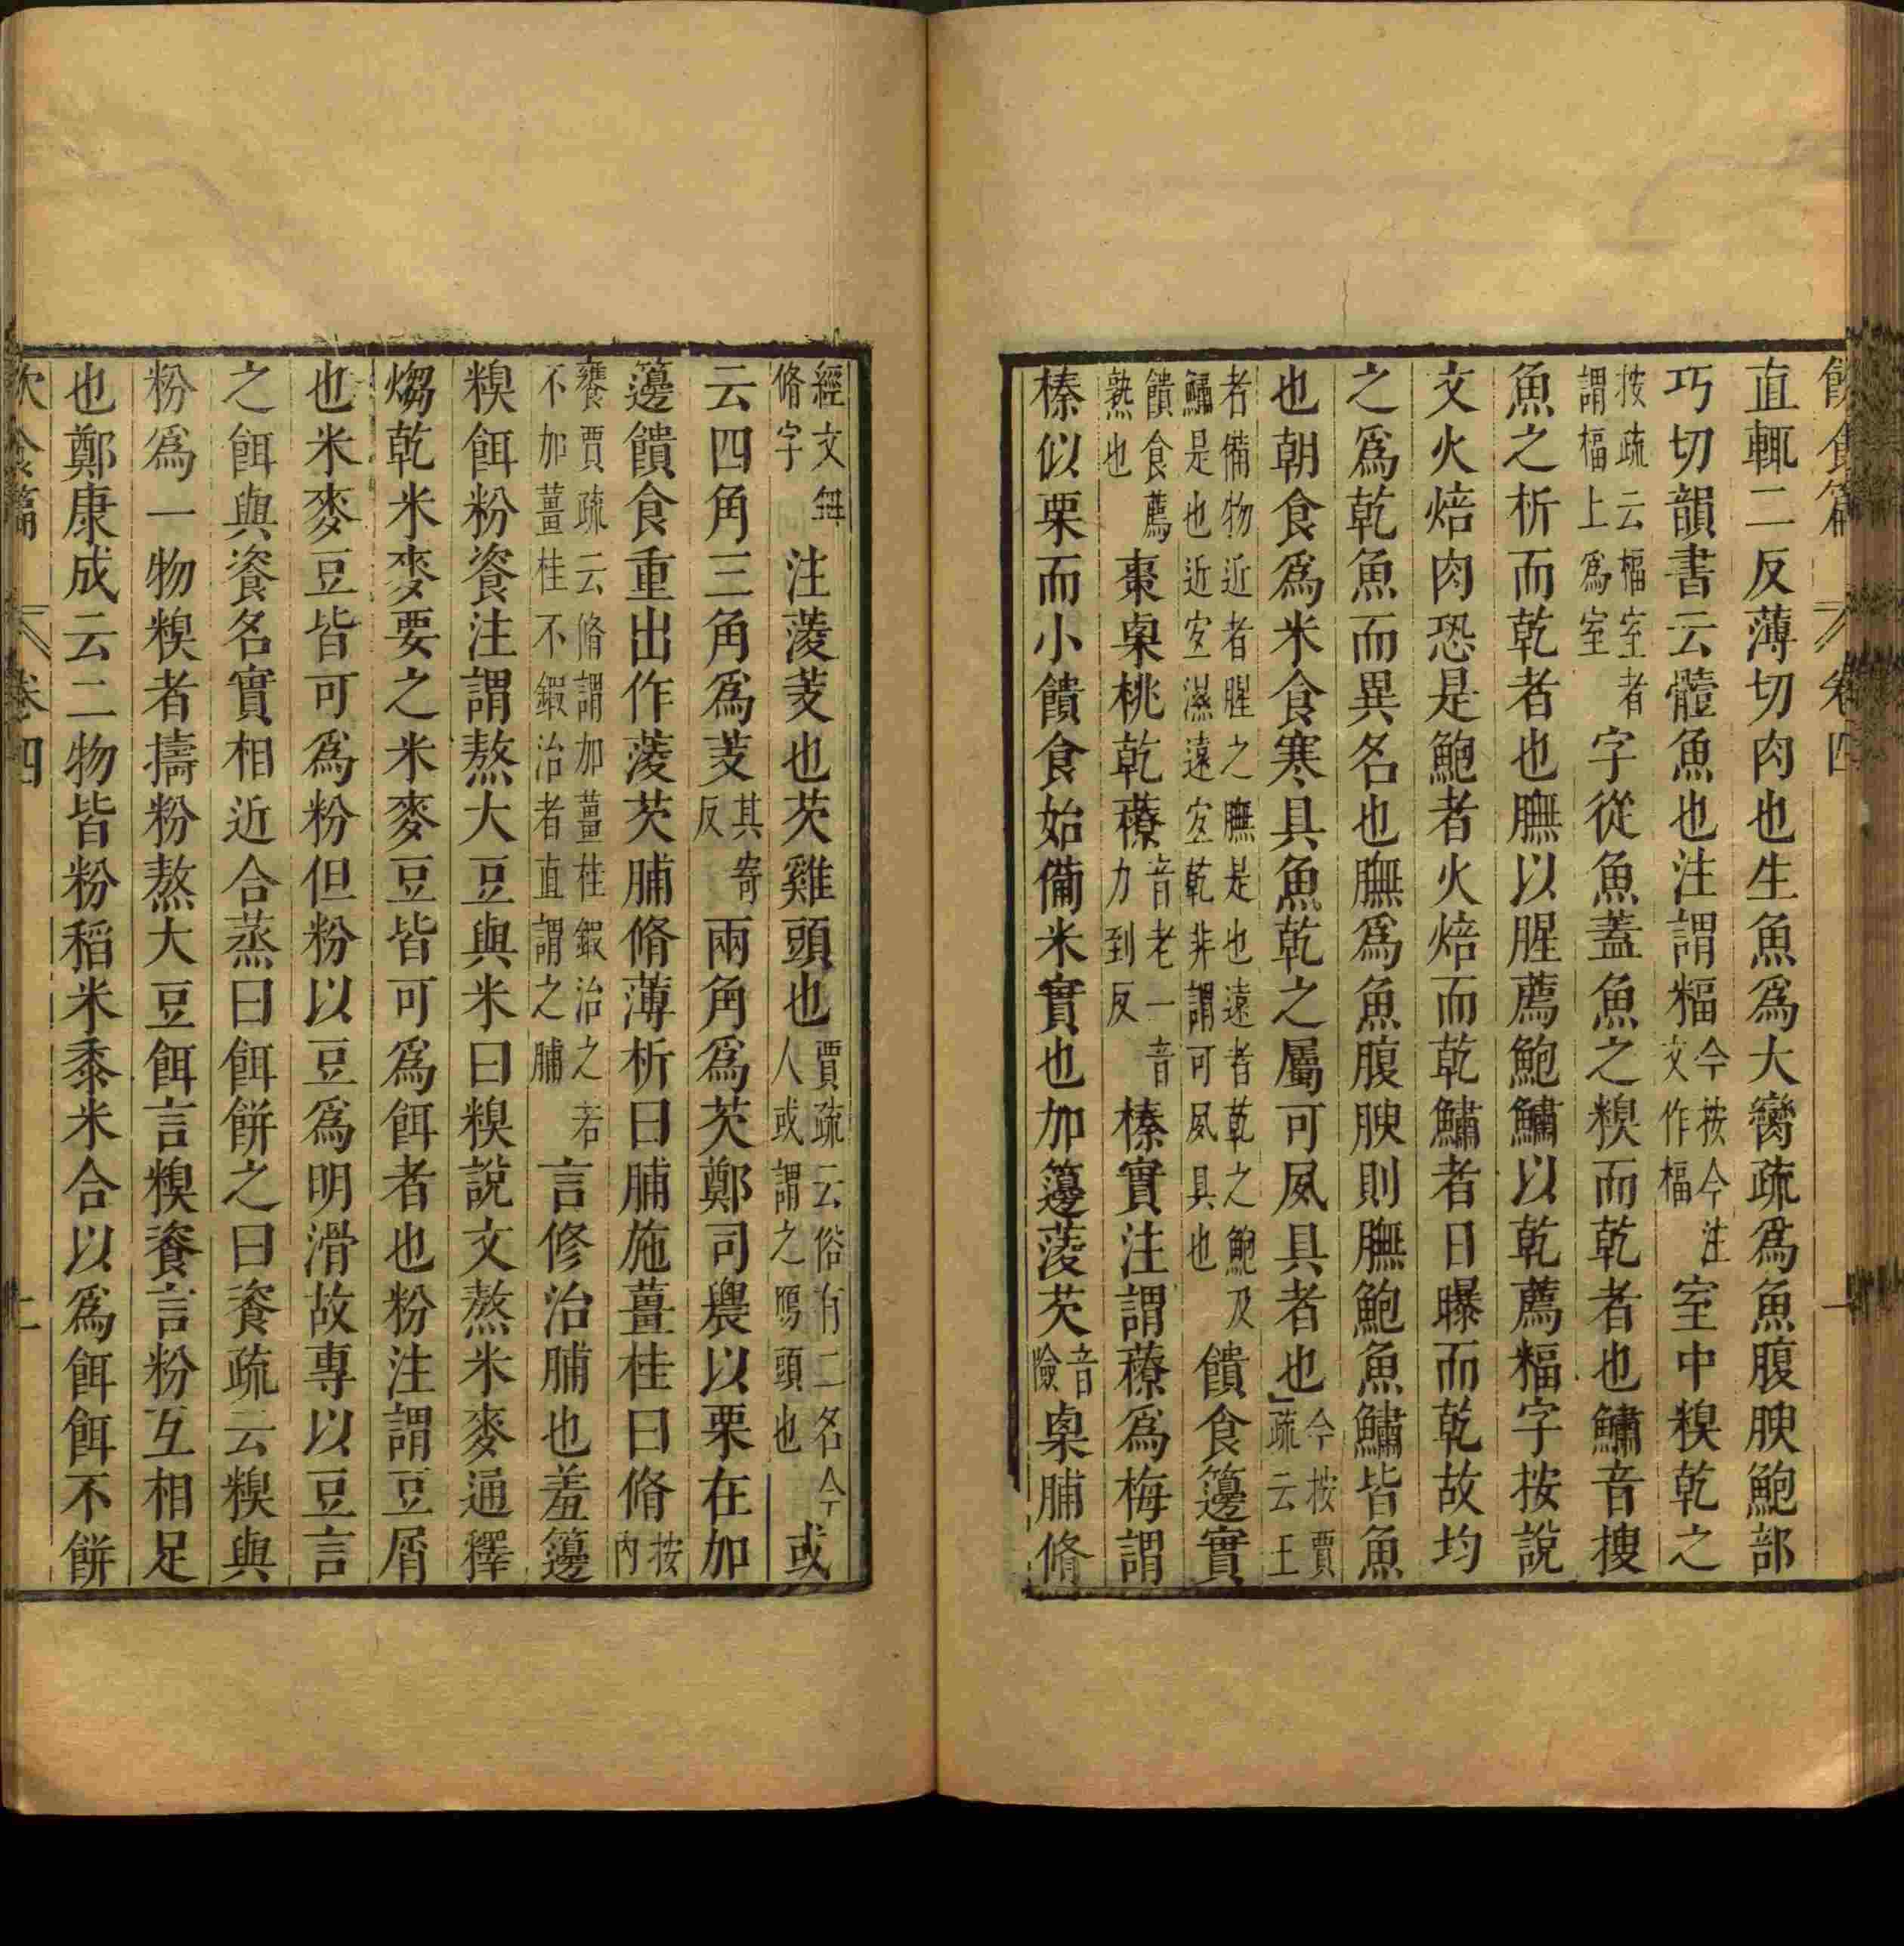 飲食篇 卷四 一
直輒二反薄切肉也生魚爲大臠疏爲魚腹腴鮑部
巧切韻書云䭘魚也注謂糒今按今注文作楅室中糗乾之
按疏云楅室者謂楅上爲室字從魚蓋魚之糗而乾者也鱐音搜
魚之析而乾者也膴以腥薦鮑鱐以乾薦糒字按說
文火焙肉恐是鮑者火焙而乾鱐者日曝而乾故均
之爲乾魚而異名也膴爲魚腹腴則膴鮑魚鱐皆魚
也朝食爲米食寒具魚乾之屬可夙具者也今按賈疏云王
者備物近者腥之膴是也遠者乾之鮑及鱐是也近宜濕遠宜乾非謂可夙具也饋食籩實
饋食薦熟也棗㮚桃乾䕩音老一音力到反榛實注謂䕩爲梅謂
榛似栗而小饋食始備米實也加籩蔆芡音險㮚脯脩
經文無脩字注蔆芰也芡雞頭也賈疏云俗有二名今人或謂之鴈頭也或
云四角三角爲芰其寄反兩角爲芡鄭司農以栗在加
籩饋食重出作蔆芡脯脩薄析曰脯施薑桂曰脩按內
饔賈疏云脩謂加薑桂鍜治之若不加薑桂不鍜治者直謂之脯言修治脯也羞籩
糗餌粉餈注謂熬大豆與米曰糗說文熬米麥通釋
煼乾米麥要之米麥豆皆可爲餌者也粉注謂豆屑
也米麥豆皆可爲粉但粉以豆爲明滑故專以豆言
之餌與餈名實相近合蒸曰餌餅之曰餈疏云糗與
粉爲一物糗者擣粉熬大豆餌言糗餈言粉互相足
也鄭康成云二物皆粉稻米黍米合以爲餌餌不餅
飲食篇 卷四 二